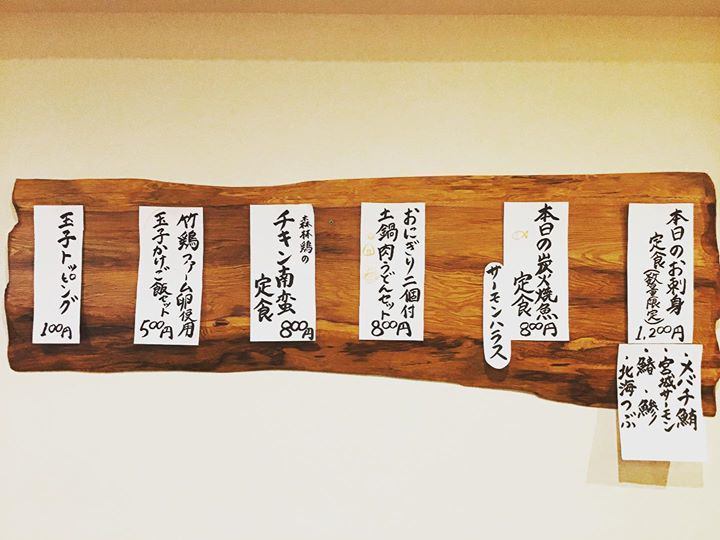 本日のお刺身
定食(数量限定)
1,200円
・メバチ鮪
宮城サーモン
・鰆・鯵
・北海つぶ
本日の炭火焼魚
定食
800円
サーモンハラス
おにぎり二個付
土鍋肉うどんセット
800円
森林鶏の
チキン南蛮
定食
800円
竹鶏ファーム卵使用
玉子かけご飯セット
500円
玉子トッピング
100円